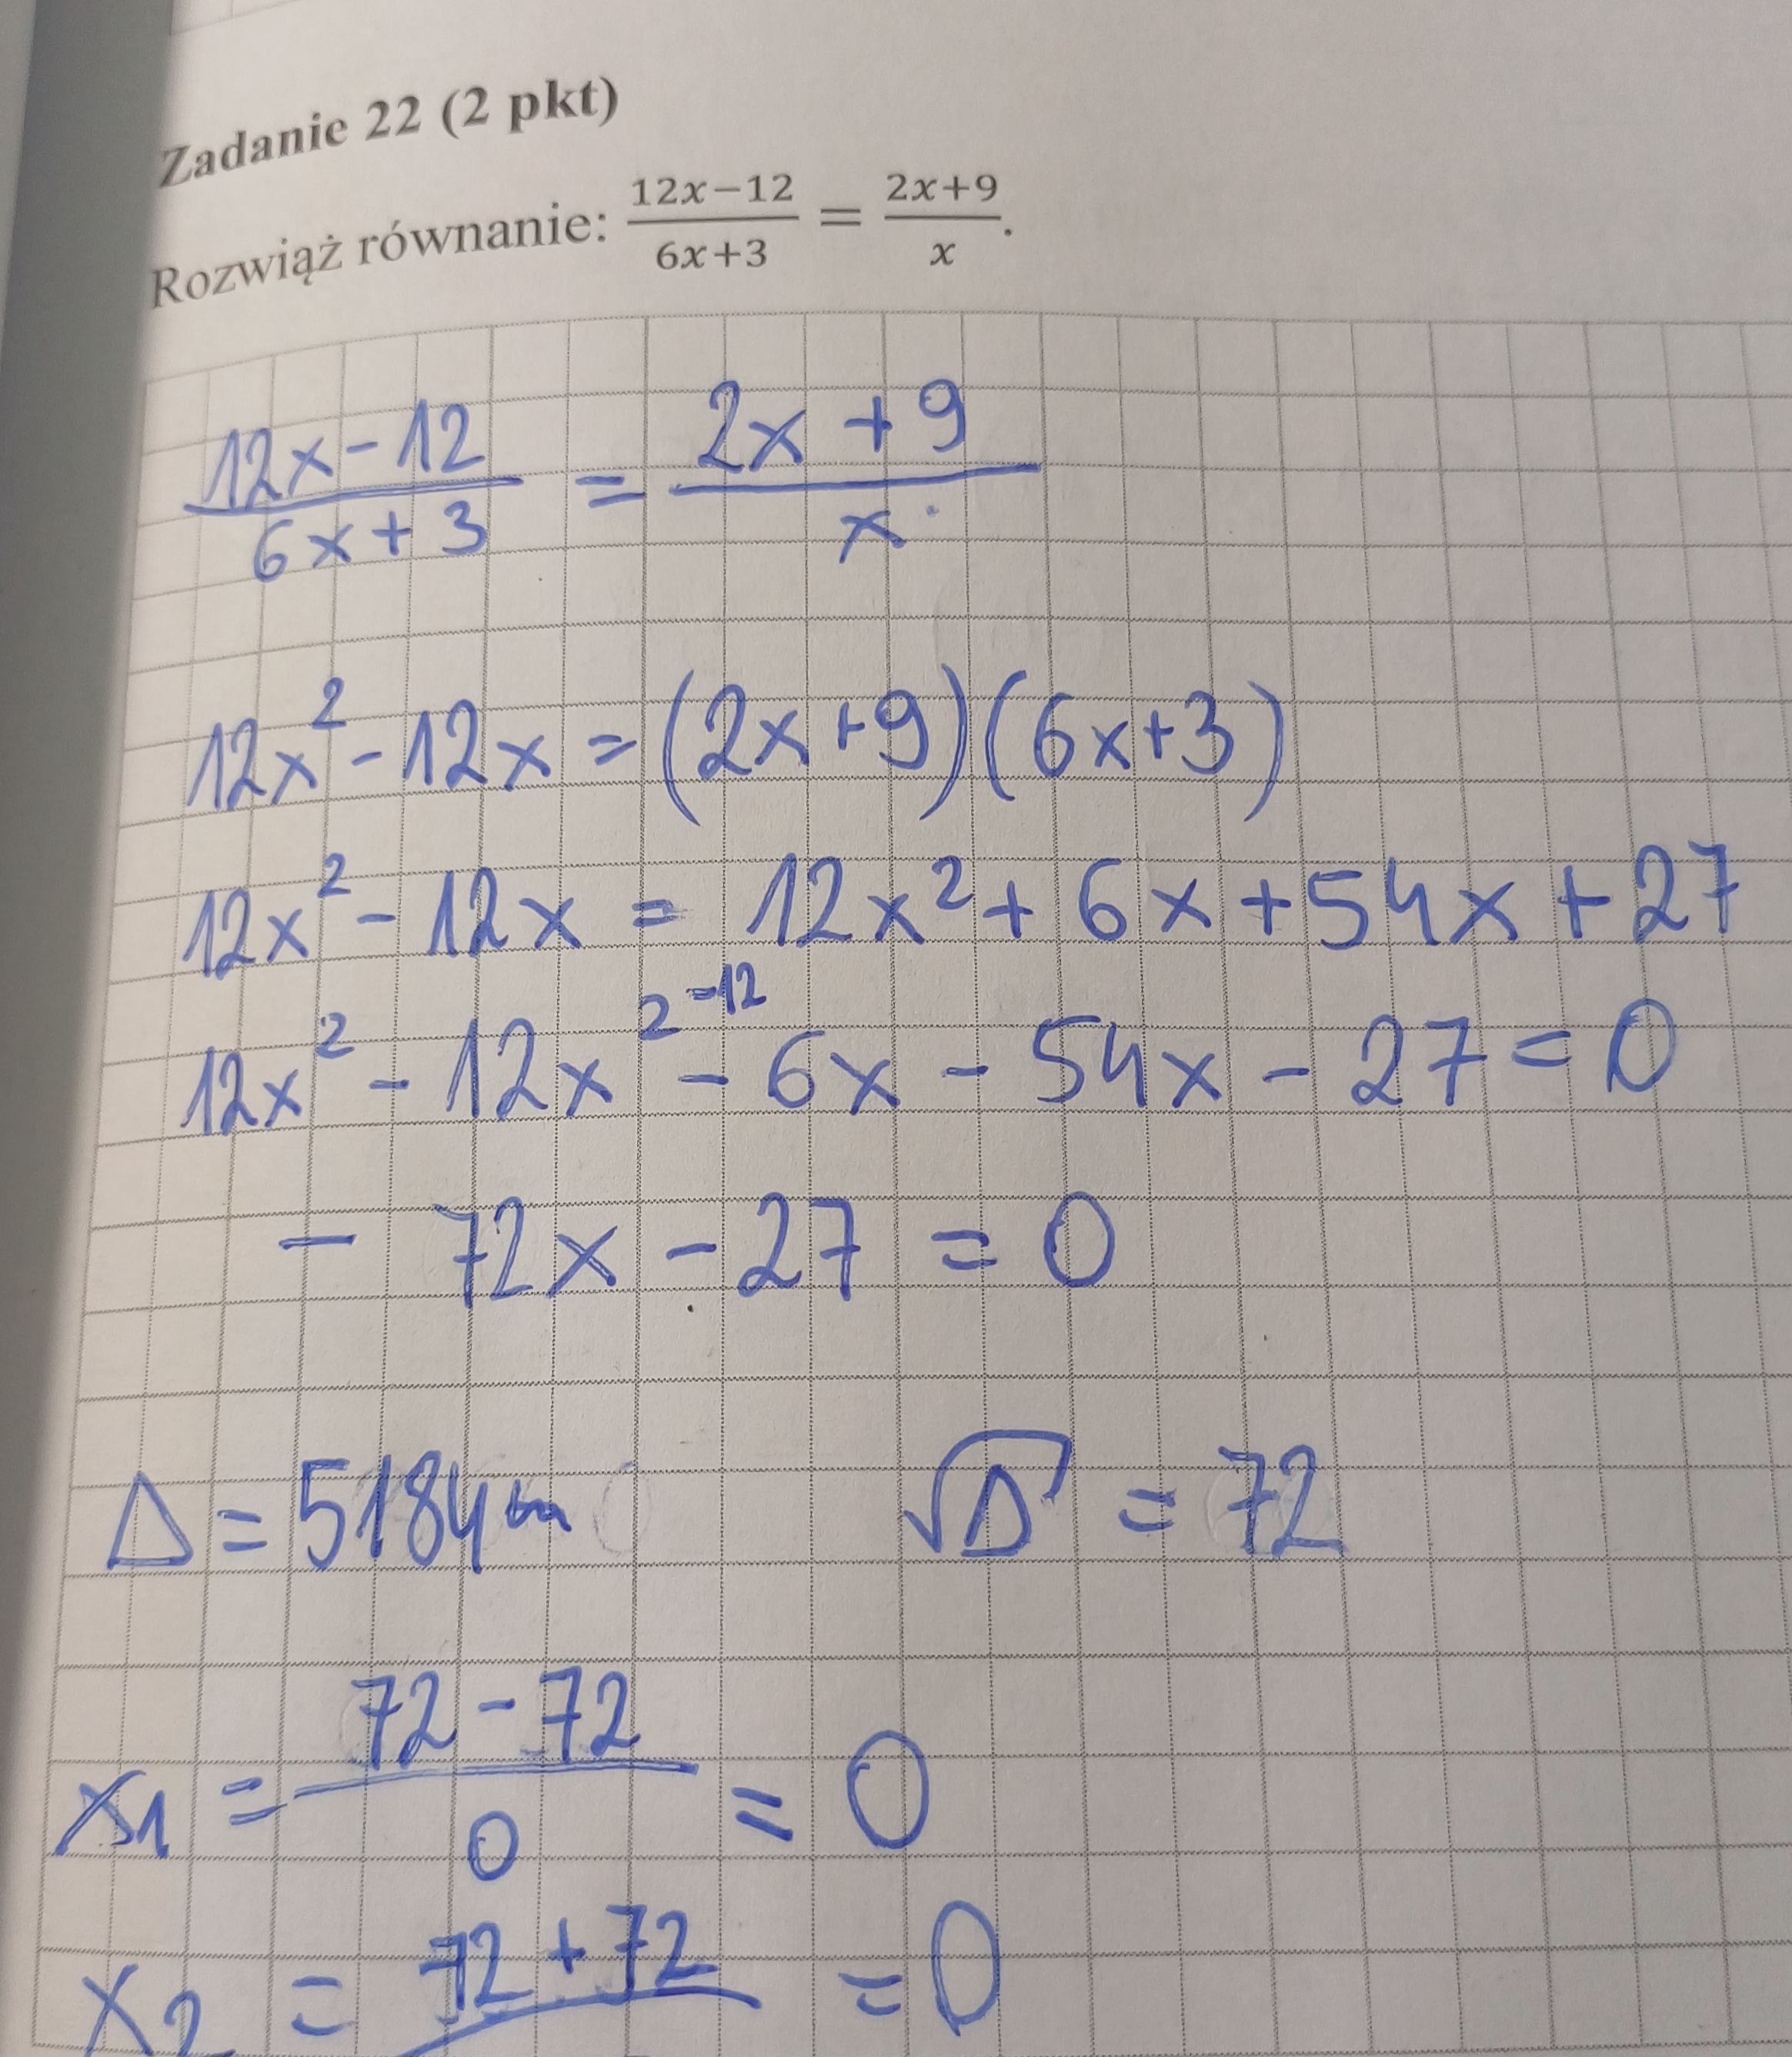 Zadanie 22 (2 pkt)
Rozwiąż równanie: \frac{12x-12}{6x+3} = \frac{2x+9}{x}.
\frac{12x-12}{6x+3} = \frac{2x+9}{x}
12x² - 12x = (2x+9)(6x+3)
12x² - 12x = 12x² + 6x + 54x + 27
12x² - 12x² -12 - 6x - 54x - 27 = 0
- 72x - 27 = 0
Δ = 5184 √Δ = 72
x₁ = \frac{72-72}{0} = 0
x₂ = 72+72 = 0